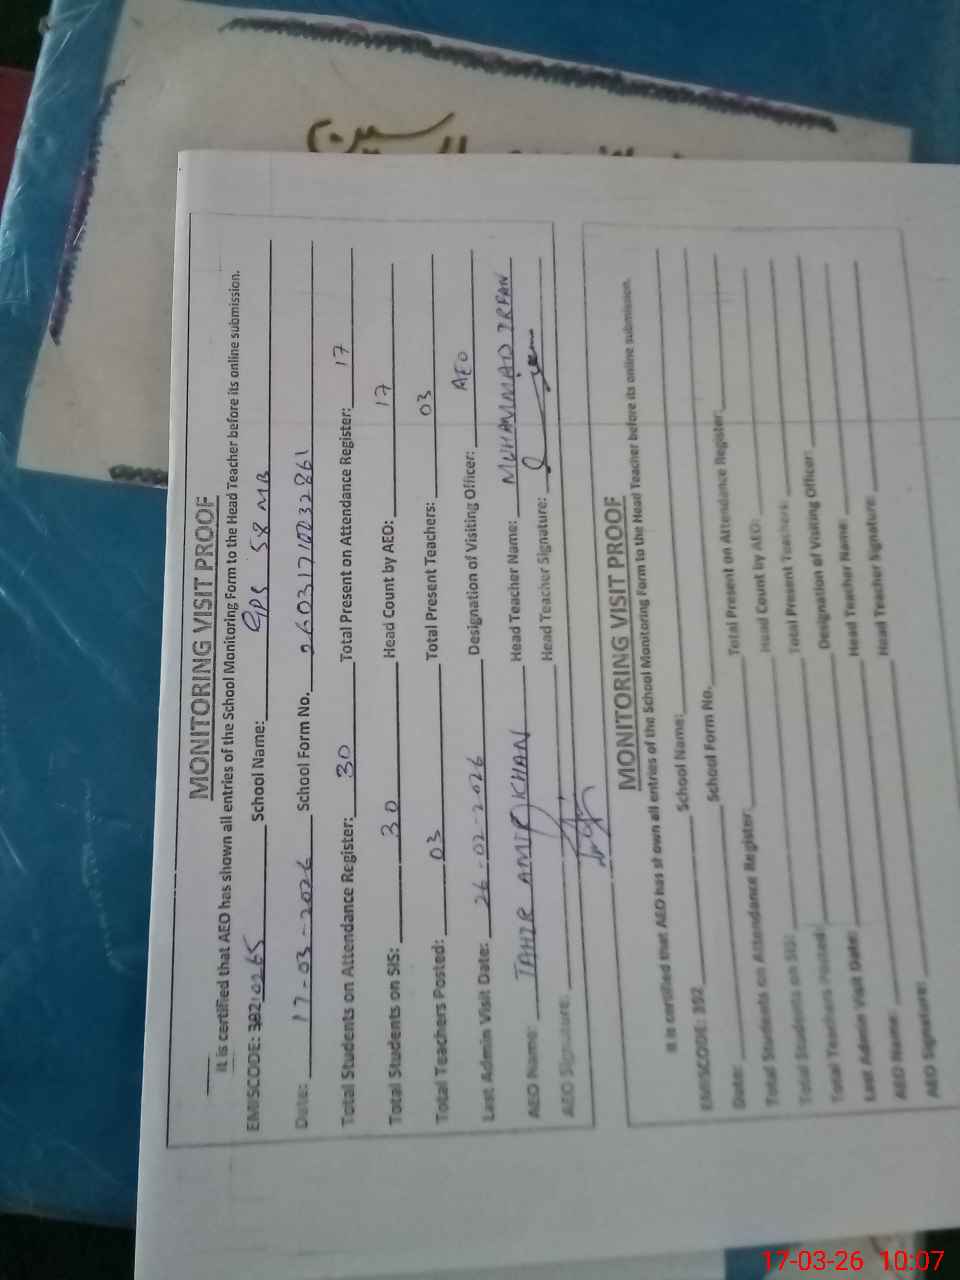 السین
MONITORING VISIT PROOF
It is certified that AEO has shown all entries of the School Monitoring Form to the Head Teacher before its online submission.
EMISCODE: 39210265 School Name: GPS 58 MB
Date: 17-03-2026 School Form No. 260317100232861
Total Students on Attendance Register: 30 Total Present on Attendance Register: 17
Total Students on SIS: 30 Head Count by AEO: 17
Total Teachers Posted: 03 Total Present Teachers: 03
Last Admin Visit Date: 26-02-2026 Designation of Visiting Officer: AEO
AEO Name: TAHIR AMIR KHAN Head Teacher Name: MUHAMMAD IRFAN
AEO Signature: Head Teacher Signature:
MONITORING VISIT PROOF
It is certified that AEO has shown all entries of the School Monitoring Form to the Head Teacher before its online submission.
EMISCODE: 392 School Name:
Date: School Form No.
Total Students on Attendance Register: Total Present on Attendance Register:
Total Students on SIS: Head Count by AEO:
Total Teachers Posted: Total Present Teachers:
Last Admin Visit Date: Designation of Visiting Officer:
AEO Name: Head Teacher Name:
AEO Signature: Head Teacher Signature:
17-03-26 10:07